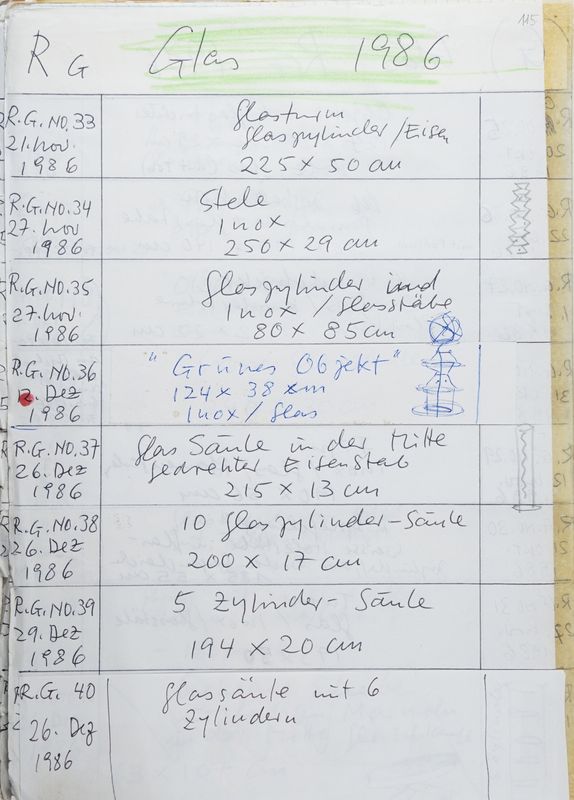 115
R G Glas 1986
R.G.NO.33 Glasturm
21.Nov. Glaszylinder/Eisen
1986 225 x 50 cm
R.G.NO.34 Stele
27.Nov Inox
1986 250 x 29 cm
R.G.NO.35 Glaszylinder und
27.Nov. Inox / Glasstäbe
1986 80 x 85 cm
R.G.NO.36 "Grünes Objekt"
12. Dez 124 x 38 cm
1986 Inox/Glas
R.G.NO.37 Glas Säule in der Mitte
26. Dez gedrehter Eisenstab
1986 215 x 13 cm
R.G.NO.38 10 Glaszylinder-Säule
26. Dez 200 x 17 cm
1986
R.G.NO.39 5 Zylinder-Säule
29. Dez 194 x 20 cm
1986
R.G. 40 Glassäule mit 6
26. Dez Zylindern
1986